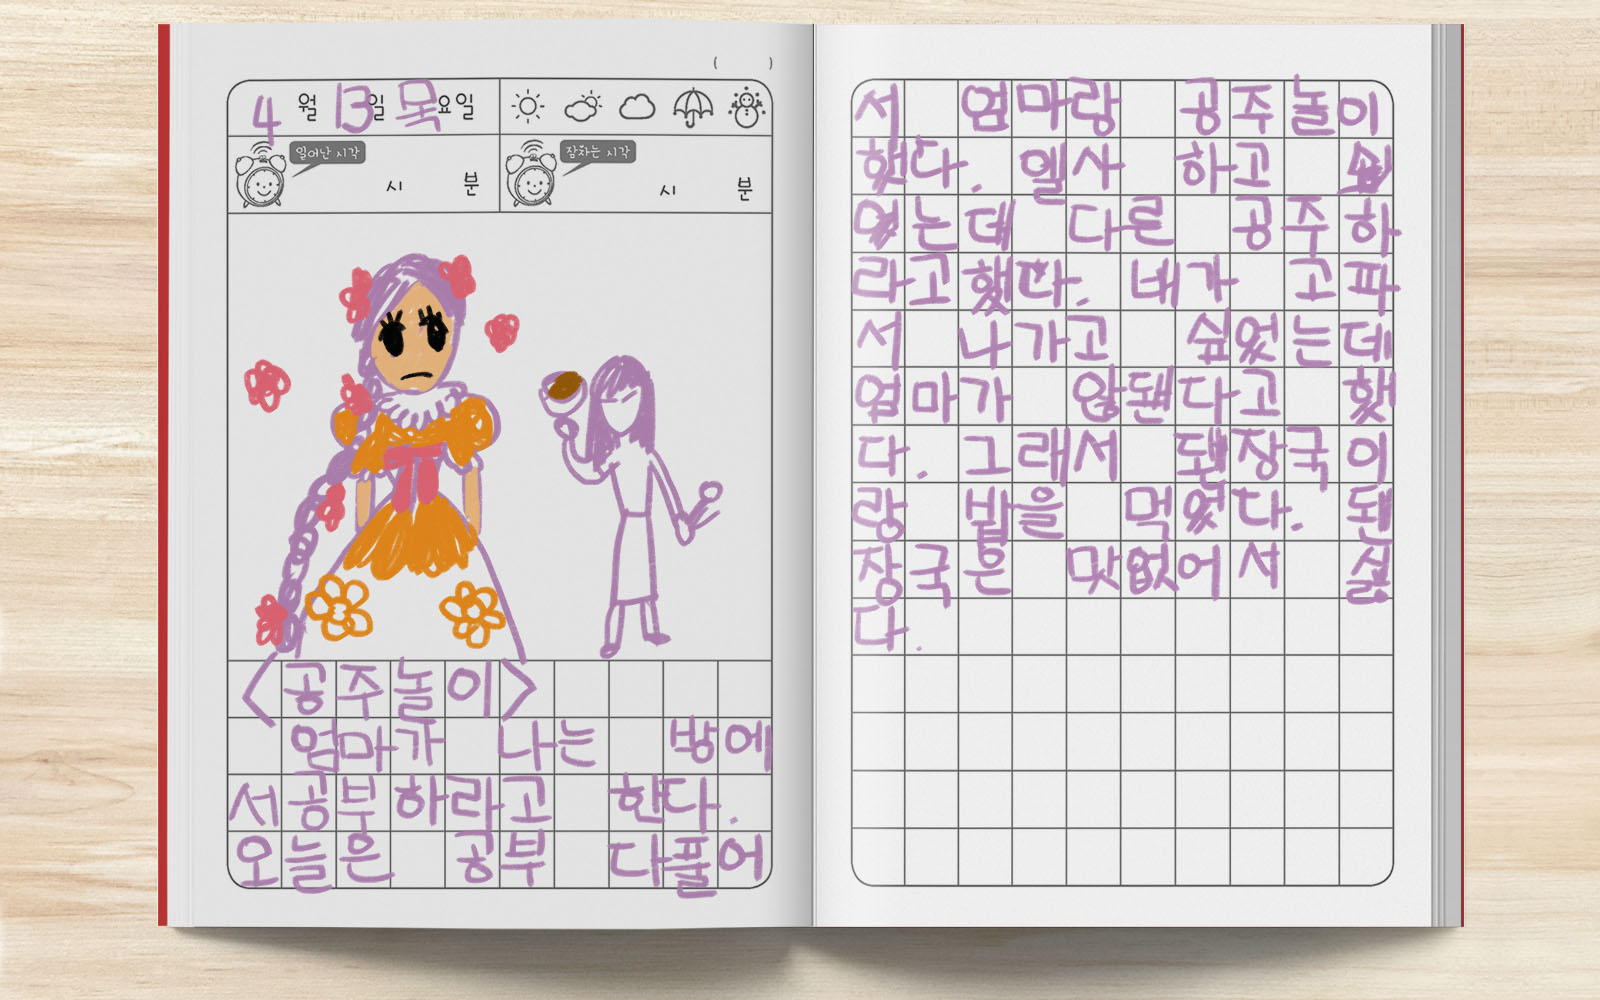 4월 13일 목요일
일어난 시각 시 분 잠자는 시각 시 분
<공주놀이>
엄마가 나는 방에
서공부하라고 한다.
오늘은 공부 다풀어
서 엄마랑 공주놀이
했다. 엘사 하고 싶
었는데 다른 공주하
라고 했다. 배가 고파
서 나가고 싶었는데
엄마가 않됀다고 했
다. 그래서 됀장국이
랑 밥을 먹었다. 됀
장국은 맛없어서 싫
다.